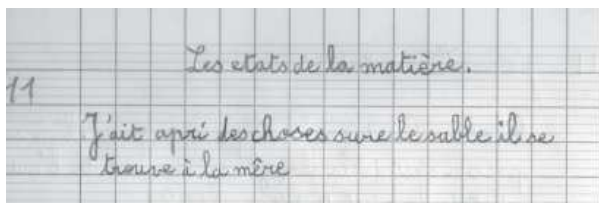 Les etats de la matière.
11
J'ait apri des choses sure le sable il se
trouve à la mêre